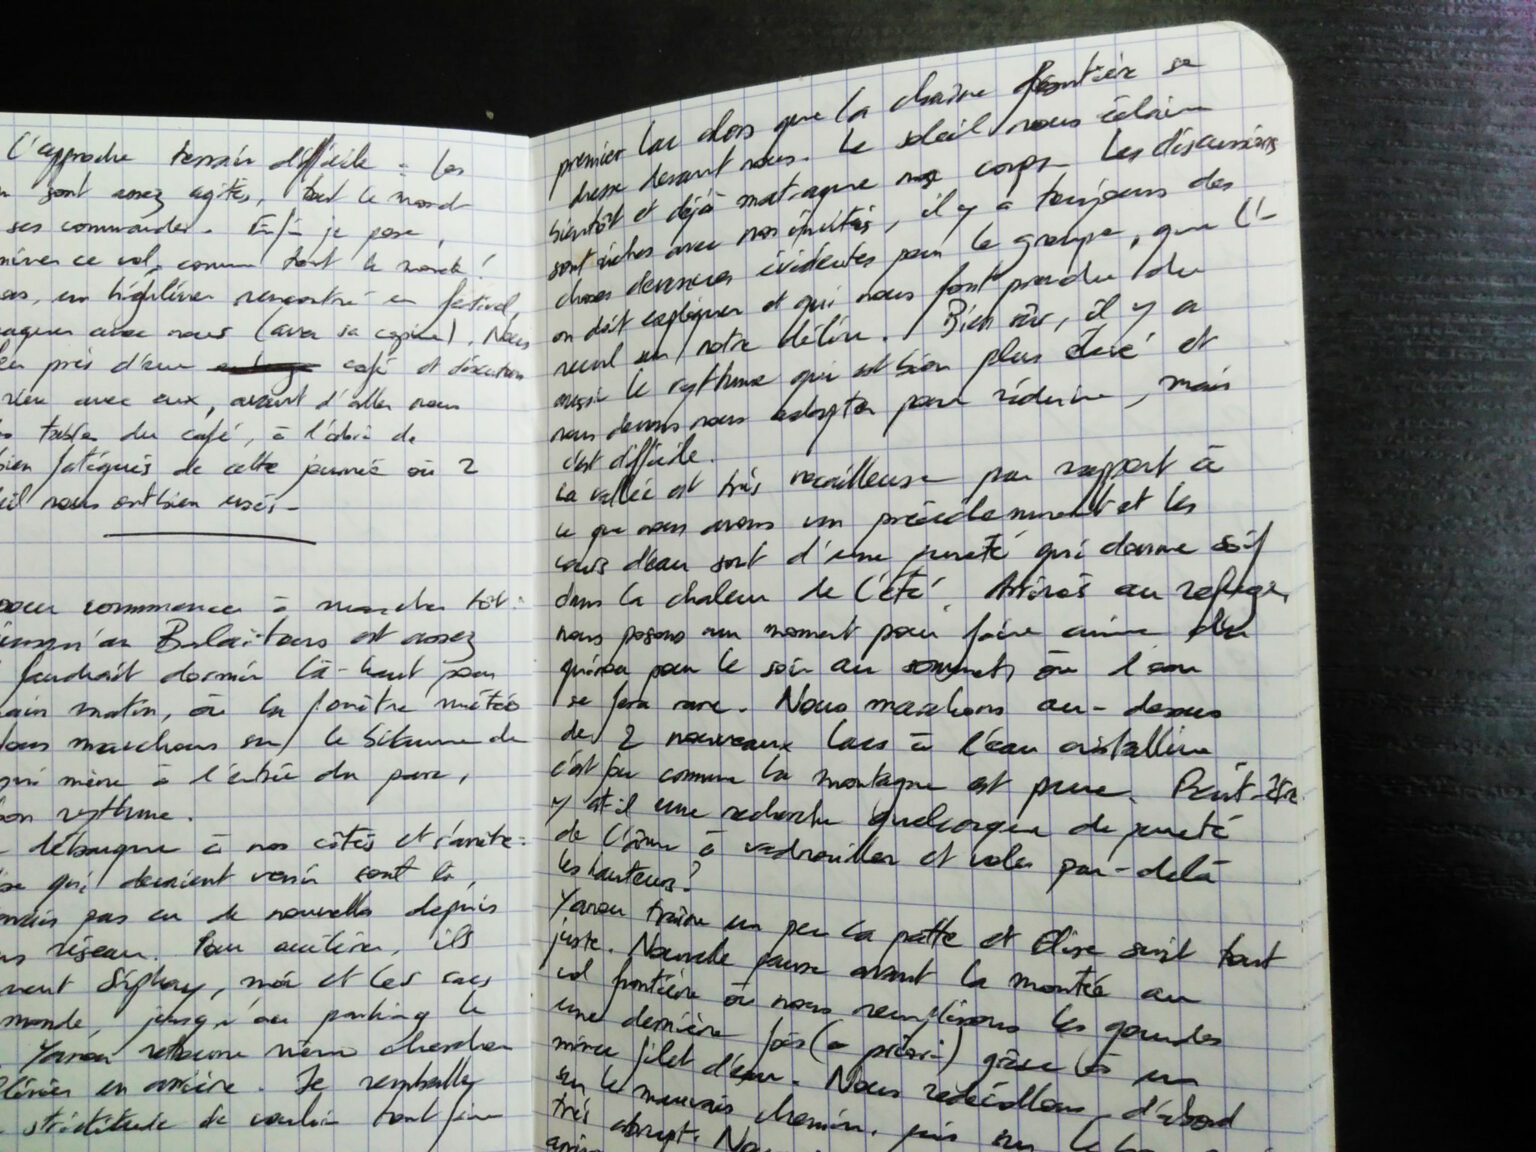 l'approche terrain difficile : les
sont assez agités, tout le monde
ses commandes. Enfin je pose,
ce vol, comme tout le monde !
un highliner rencontré en festival,
avec nous (avec sa copine). Nous
près d'un café et discutons
avec eux, avant d'aller nous
tables du café, à l'abri de
bien fatigués de cette journée où 2
nous ont bien usés.
pour commencer à marcher tôt :
jusqu'au Balaïtous est assez
faudrait dormir là-haut pour
matin, où la fenêtre météo
nous marchons sur le bitume de
qui mène à l'entrée du parc,
bon rythme.
débarque à nos côtés et s'arrête :
qui devaient venir sont là,
pas eu de nouvelles depuis
réseau. Pour accélérer, ils
moi et les sacs
monde, jusqu'au parking le
Yanou retourne même chercher
en arrière. Je remballe
de vouloir tout faire
premier lac alors que la chaîne frontière se
dresse devant nous. Le soleil nous éclaire
bientôt et déjà matraque nos corps. Les discussions
sont riches avec nos invités, il y a toujours des
choses devenues évidentes pour le groupe, que l'-
on doit expliquer et qui nous font prendre du
recul sur notre délire. Bien sûr, il y a
aussi le rythme qui est bien plus élevé et
nous devons nous adapter pour réduire, mais
c'est difficile.
La vallée est très rocailleuse par rapport à
ce que nous avons vu précédemment et les
cours d'eau sont d'une pureté qui donne soif
dans la chaleur de l'été. Arrivés au refuge,
nous posons un moment pour faire cuire du
quinoa pour le soir au sommet, où l'eau
se fera rare. Nous marchons au-dessus
de 2 nouveaux lacs à l'eau cristalline
c'est fou comme la montagne est pure. Peut-être
y at-il une recherche quelconque de pureté
de l'âme à vadrouiller et voler par-delà
les hauteurs ?
Yanou traîne un peu la patte et Elise suit tout
juste. Nouvelle pause avant la montée au
col frontière où nous remplissons les gourdes
une dernière fois (a priori) grâce à un
mince filet d'eau. Nous redécollons, d'abord
sur le mauvais chemin, puis sur le
très abrupt.